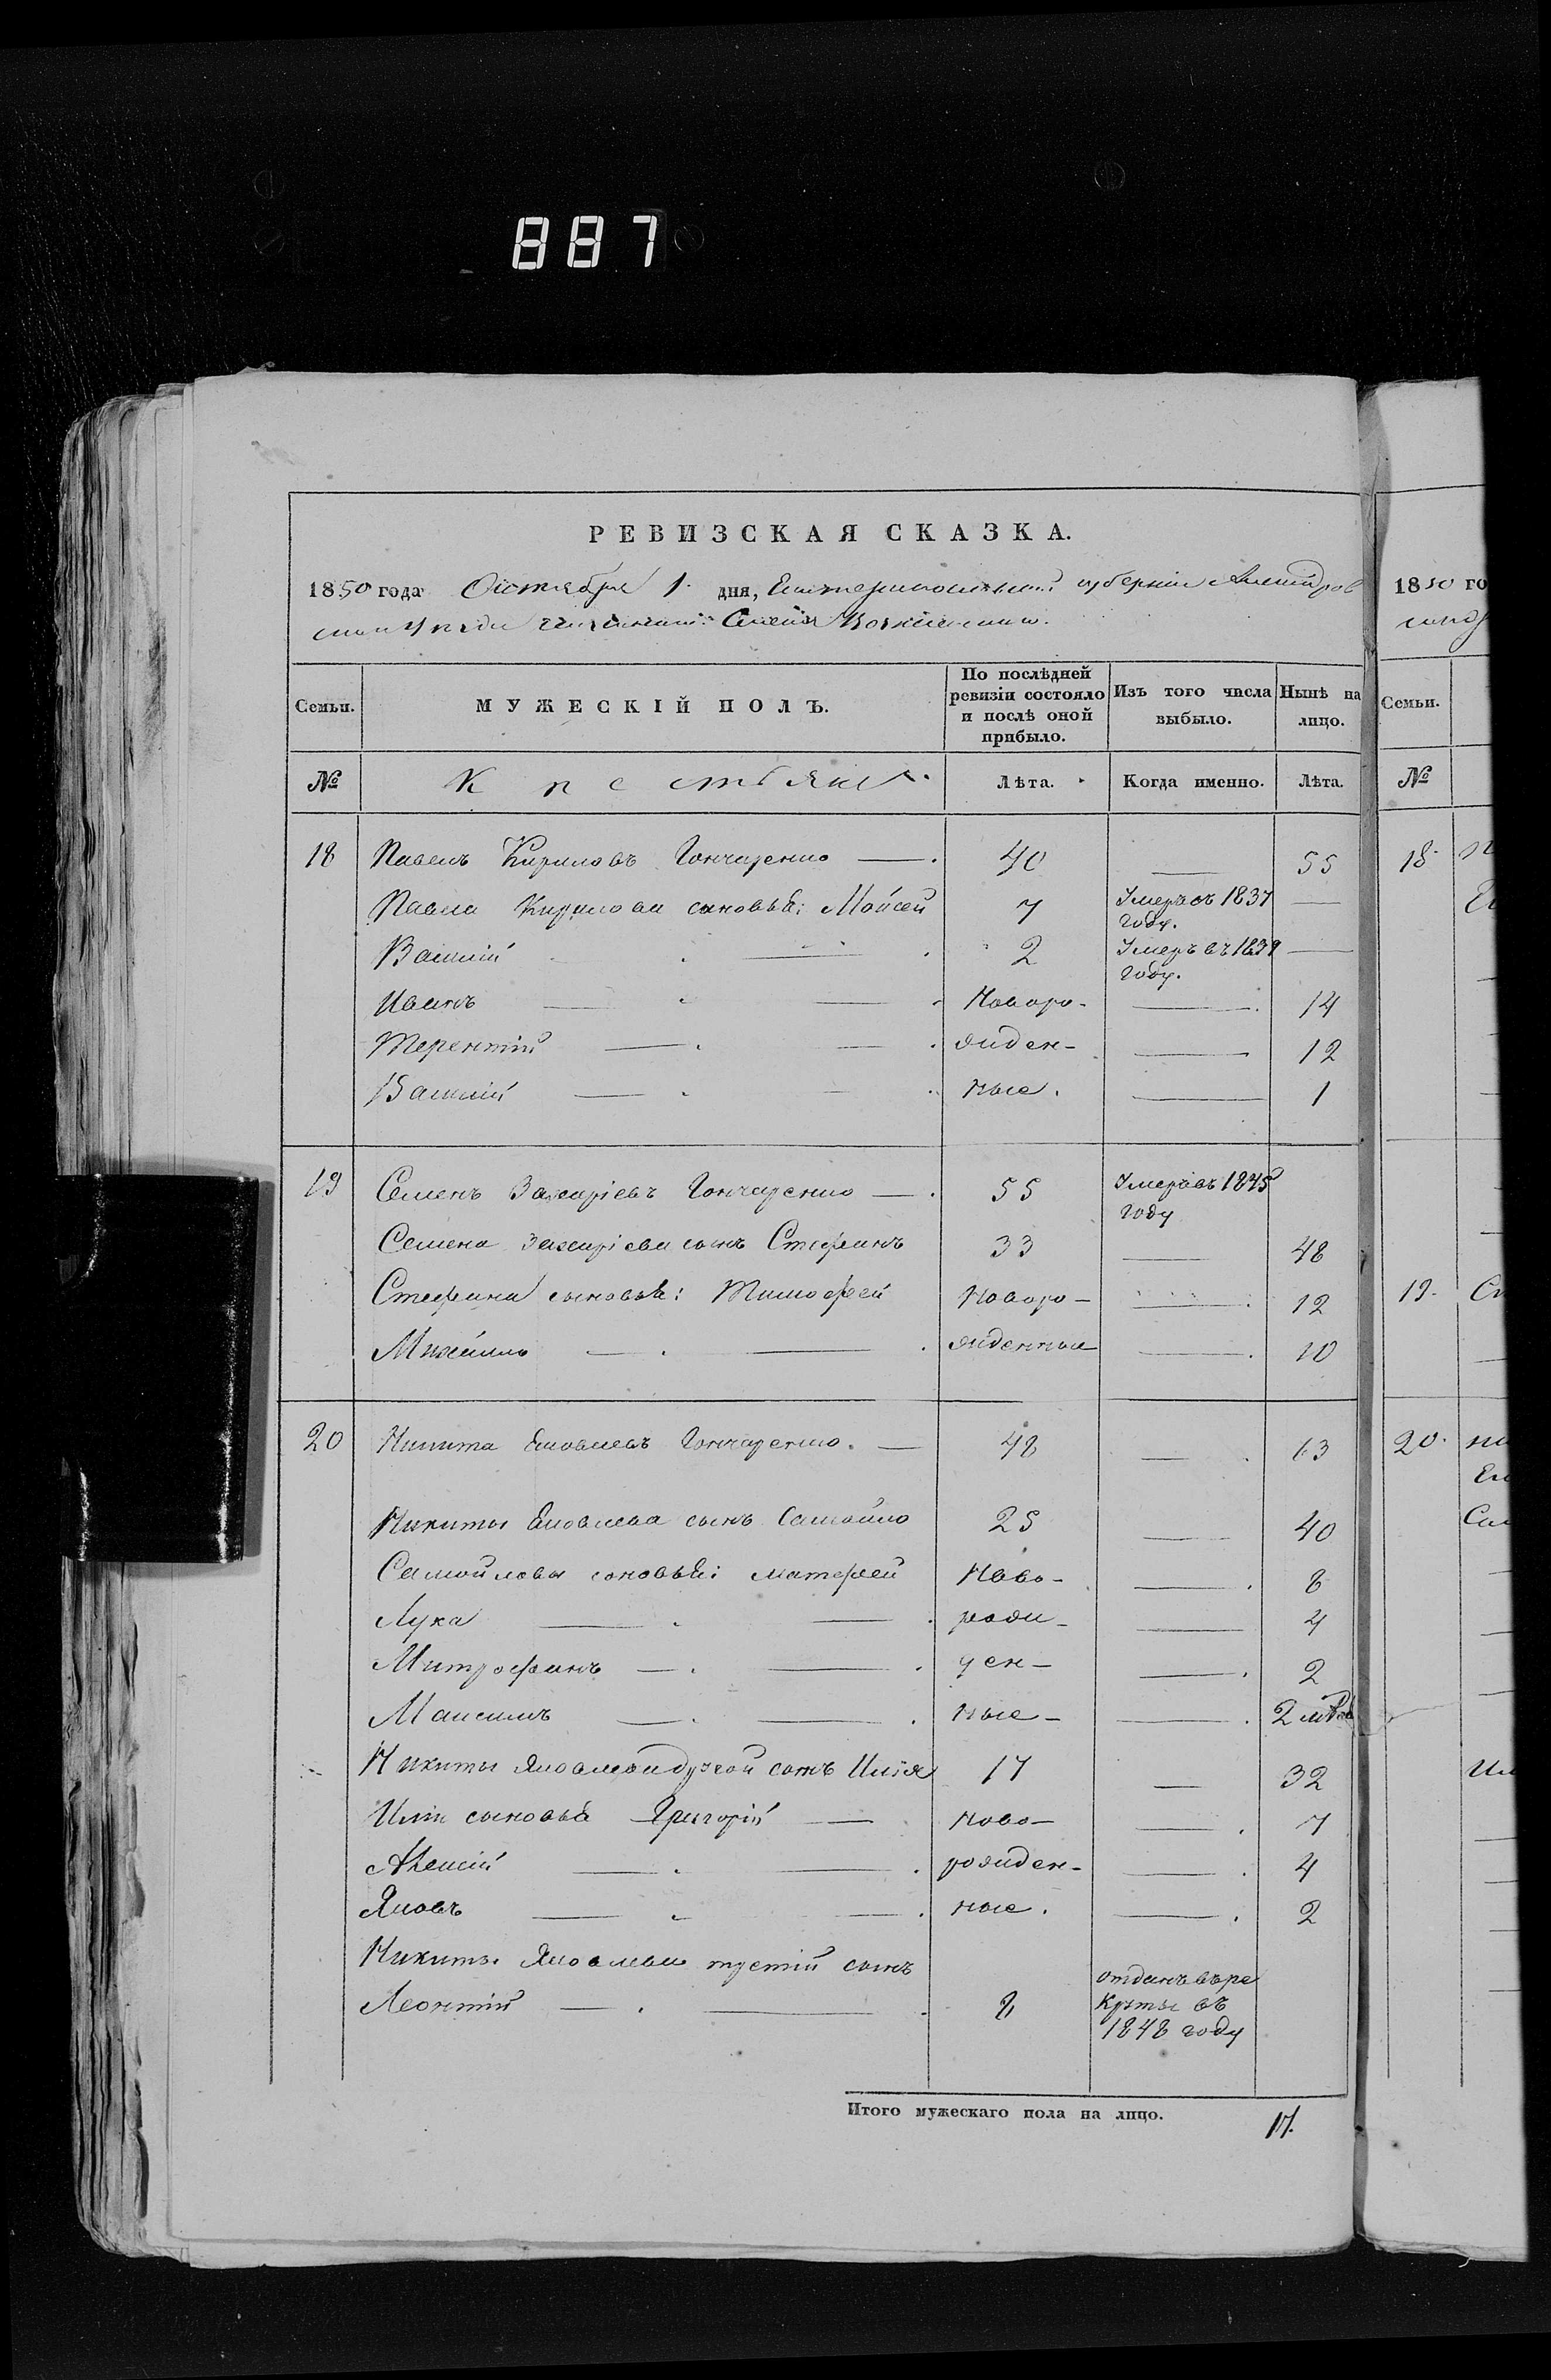 887
РЕВИЗСКАЯ СКАЗКА.
1850 года Октября 1 дня, Екатеринославской губерніи Александров
ской Уезда селенія Вознесенки.
Семьи. МУЖЕСКІЙ ПОЛЪ. По послѣдней ревизіи состояло и послѣ оной прибыло. Изъ того числа выбыло. Нынѣ на лицо.
№ Лѣта. Когда именно. Лѣта.
18 Павелъ Кириловъ Гончаренко — 40 — 55
Павла Кирилова сыновья: Мойсей 7 Умеръ въ 1837 году. —
Василій — 2 Умеръ въ 1839 году. —
Иванъ — Новоро- — 14
Терентій — жден- — 12
Василій — ные. — 1
19 Семенъ Захаріевъ Гончаренко — 55 Умеръ въ 1845 году
Семена Захаріева сынъ Стефанъ 33 — 48
Стефана сыновья: Тимофей Новоро- — 12
Михайло — жденные — 10
20 Никита Яковлевъ Гончаренко. — 48 — 63
Никиты Яковлева сынъ Самойло 25 — 40
Самойловы сыновья: Матфей Ново- — 8
Лука — рожи- — 4
Митрофанъ — ден- — 2
Максимъ — ные- — 2
Никиты Яковлева другой сынъ Илія 17 — 32
Иліи сыновья Григорій — Ново- — 7
Алексій — рожден- — 4
Яковъ — ные. — 2
Никиты Яковлева третій сынъ
Леонтій — 8 отданъ въ ре
круты въ
1848 году
Итого мужескаго пола на лицо. 17.
1850 го
Семьи.
№
18.
19.
20.